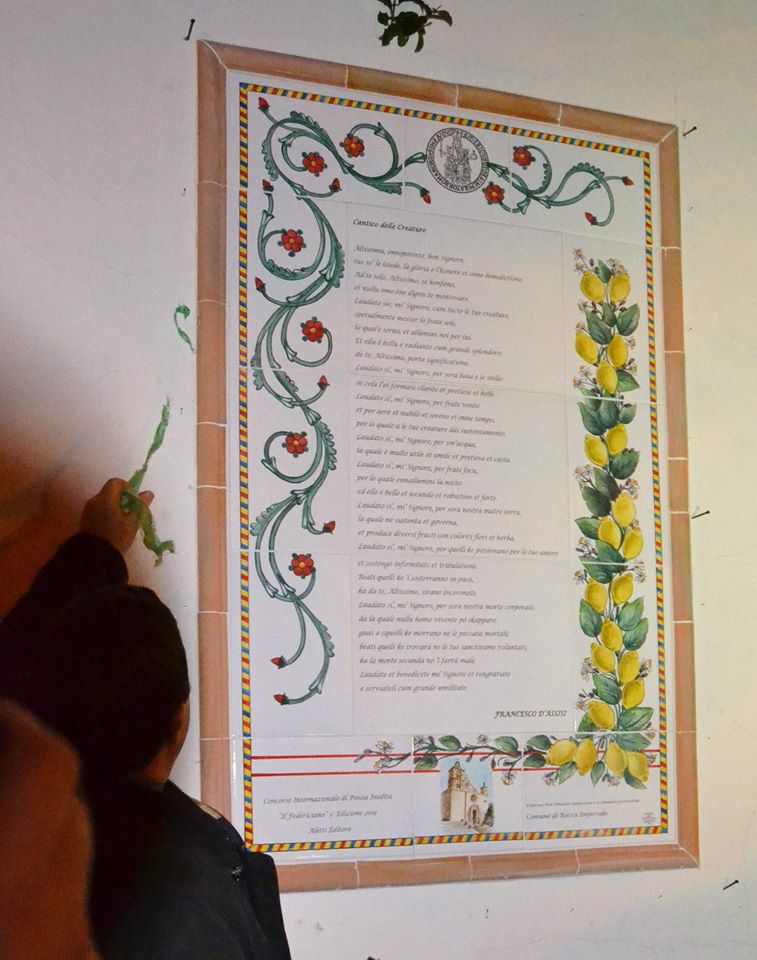 Cantico delle Creature
Altissimu, onnipotente, bon Signore,
tue so' le laude, la gloria e l'honore et onne benedictione.
Ad te solo, Altissimo, se konfano,
et nullu omo ène dignu te mentovare.
Laudato sie, mi' Signore, cum tucte le tue creature,
spetialmente messor lo frate sole,
lo qual'è iorno, et allumini noi per lui.
Et ellu è bellu e radiante cum grande splendore:
de te, Altissimo, porta significatione.
Laudato si', mi' Signore, per sora luna e le stelle:
in celu l'ài formate clarite et pretiose et belle.
Laudato si', mi' Signore, per frate vento
et per aere et nubilo et sereno et onne tempo,
per lo quale a le tue creature dài sustentamento.
Laudato si', mi' Signore, per sor'acqua,
la quale è multo utile et umile et pretiosa et casta.
Laudato si', mi' Signore, per frate focu,
per lo quale ennallumini la nocte:
ed ello è bello et iocundo et robustoso et forte.
Laudato si', mi' Signore, per sora nostra matre terra,
la quale ne sustenta et governa,
et produce diversi fructi con coloriti fiori et herba.
Laudato si', mi' Signore, per quelli ke perdonano per lo tuo amore
et sostengo infirmitate et tribulatione.
Beati quelli ke 'l sosterranno in pace,
ka da te, Altissimo, sirano incoronati.
Laudato si', mi' Signore, per sora nostra morte corporale,
da la quale nullu homo vivente pò skappare:
guai a cquelli ke morrano ne le peccata mortali;
beati quelli ke trovarà ne le tue sanctissime voluntati,
ka la morte secunda no 'l farrà male.
Laudate et benedicete mi' Signore et rengratiate
e serviateli cum grande umilitate.
FRANCESCO D'ASSISI
Concorso Internazionale di Poesia Inedita
"Il Federiciano" 5ª Edizione 2013
Aletti Editore
Comune di Rocca Imperiale